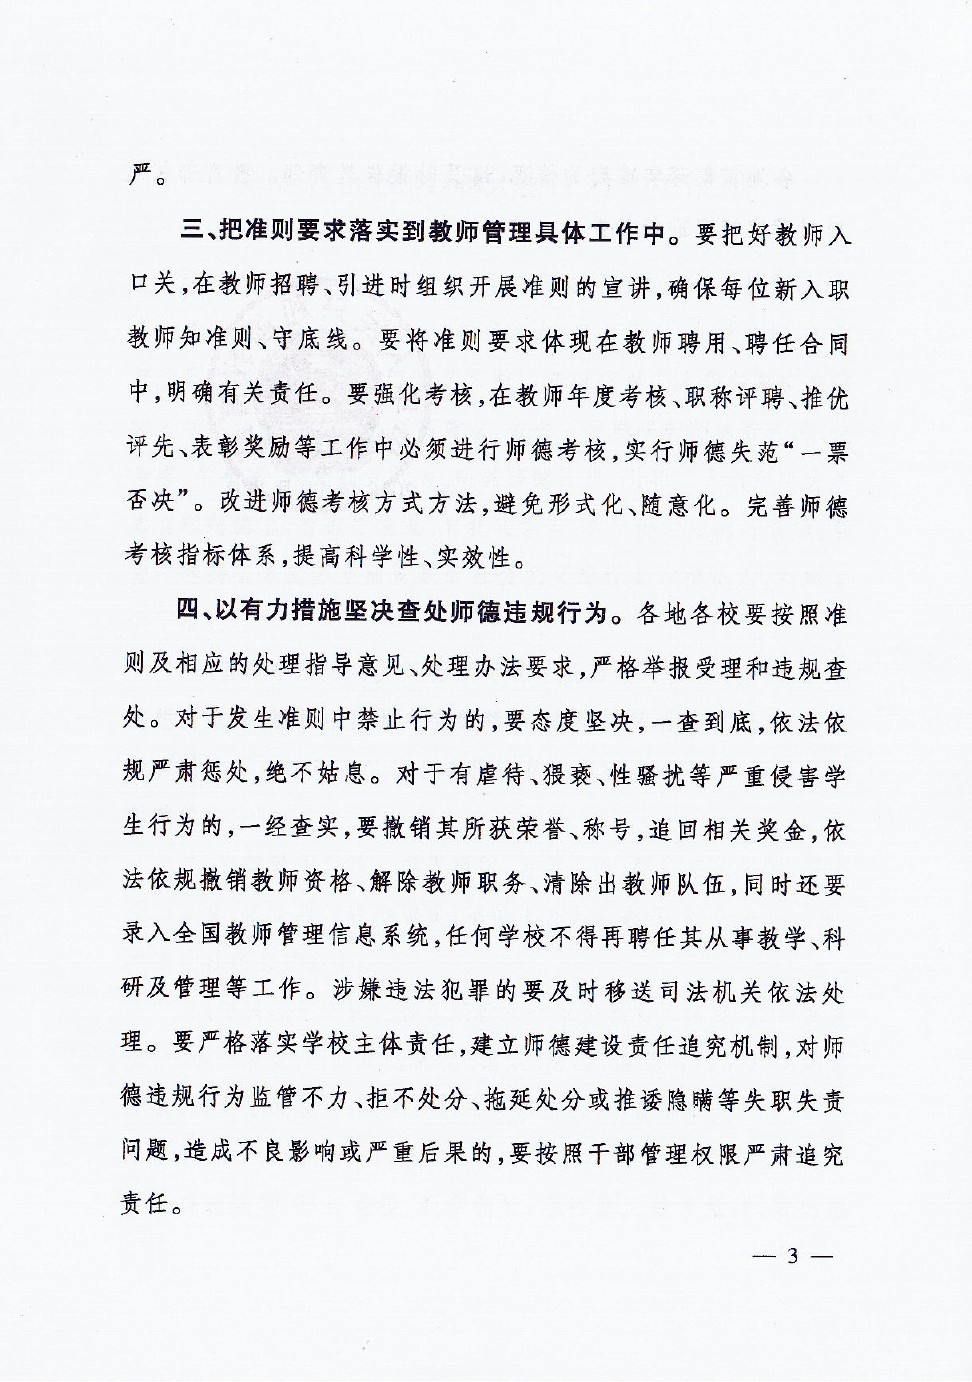 严。
三、把准则要求落实到教师管理具体工作中。要把好教师入
口关,在教师招聘、引进时组织开展准则的宣讲,确保每位新入职
教师知准则、守底线。要将准则要求体现在教师聘用、聘任合同
中,明确有关责任。要强化考核,在教师年度考核、职称评聘、推优
评先、表彰奖励等工作中必须进行师德考核,实行师德失范“一票
否决”。改进师德考核方式方法,避免形式化、随意化。完善师德
考核指标体系,提高科学性、实效性。
四、以有力措施坚决查处师德违规行为。各地各校要按照准
则及相应的处理指导意见、处理办法要求,严格举报受理和违规查
处。对于发生准则中禁止行为的,要态度坚决,一查到底,依法依
规严肃惩处,绝不姑息。对于有虐待、猥亵、性骚扰等严重侵害学
生行为的,一经查实,要撤销其所获荣誉、称号,追回相关奖金,依
法依规撤销教师资格、解除教师职务、清除出教师队伍,同时还要
录入全国教师管理信息系统,任何学校不得再聘任其从事教学、科
研及管理等工作。涉嫌违法犯罪的要及时移送司法机关依法处
理。要严格落实学校主体责任,建立师德建设责任追究机制,对师
德违规行为监管不力、拒不处分、拖延处分或推诿隐瞒等失职失责
问题,造成不良影响或严重后果的,要按照干部管理权限严肃追究
责任。
— 3 —